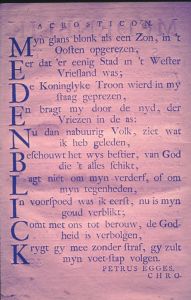 ACROSTICON.
Myn glans blonk als een Zon, in 't
Oosten opgerezen,
Eer dat 'er eenig Stad in 't Wester
Vriesland was;
De Koninglyke Troon wierd in my
staag geprezen,
En bragt my door de nyd, der
Vriezen in de as:
Nu dan nabuurig Volk, ziet wat
ik heb geleden,
Beschouwt het wys bestier, van God
die 't alles schikt,
Lagt niet om myn verderf, of om
myn tegenheden,
In voorspoed was ik eerst, nu is myn
goud verblikt;
Comt met ons tot berouw, de God-
heid is verbolgen,
Krygt gy mee zonder straf, gy zult
myn voet-stap volgen.
PETRUS EGGES,
CHRO.